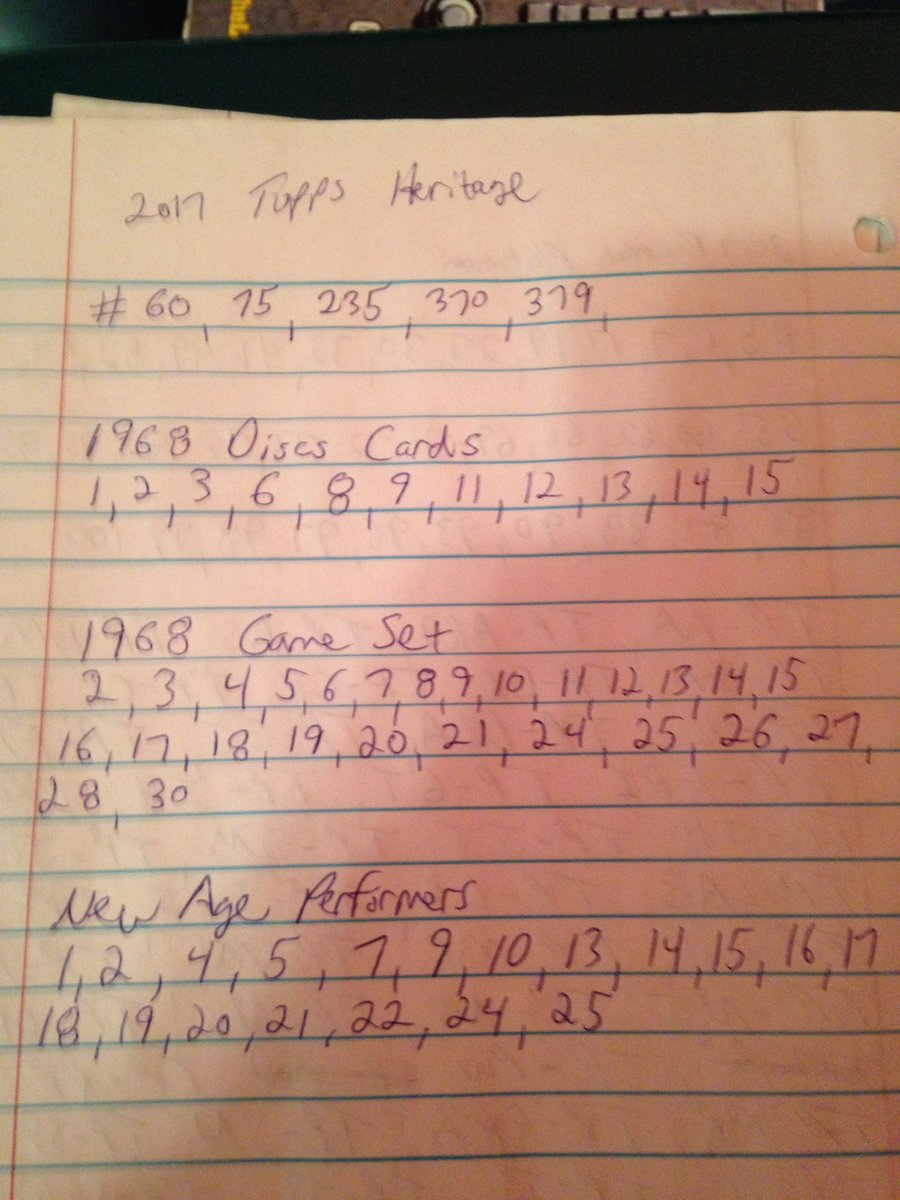 2017 Topps Heritage
# 60, 75, 235, 370, 379,
1968 Discs Cards
1, 2, 3, 6, 8, 9, 11, 12, 13, 14, 15
1968 Game Set
2, 3, 4, 5, 6, 7, 8, 9, 10, 11, 12, 13, 14, 15
16, 17, 18, 19, 20, 21, 24, 25, 26, 27,
28, 30
New Age Performers
1, 2, 4, 5, 7, 9, 10, 13, 14, 15, 16, 17
18, 19, 20, 21, 22, 24, 25